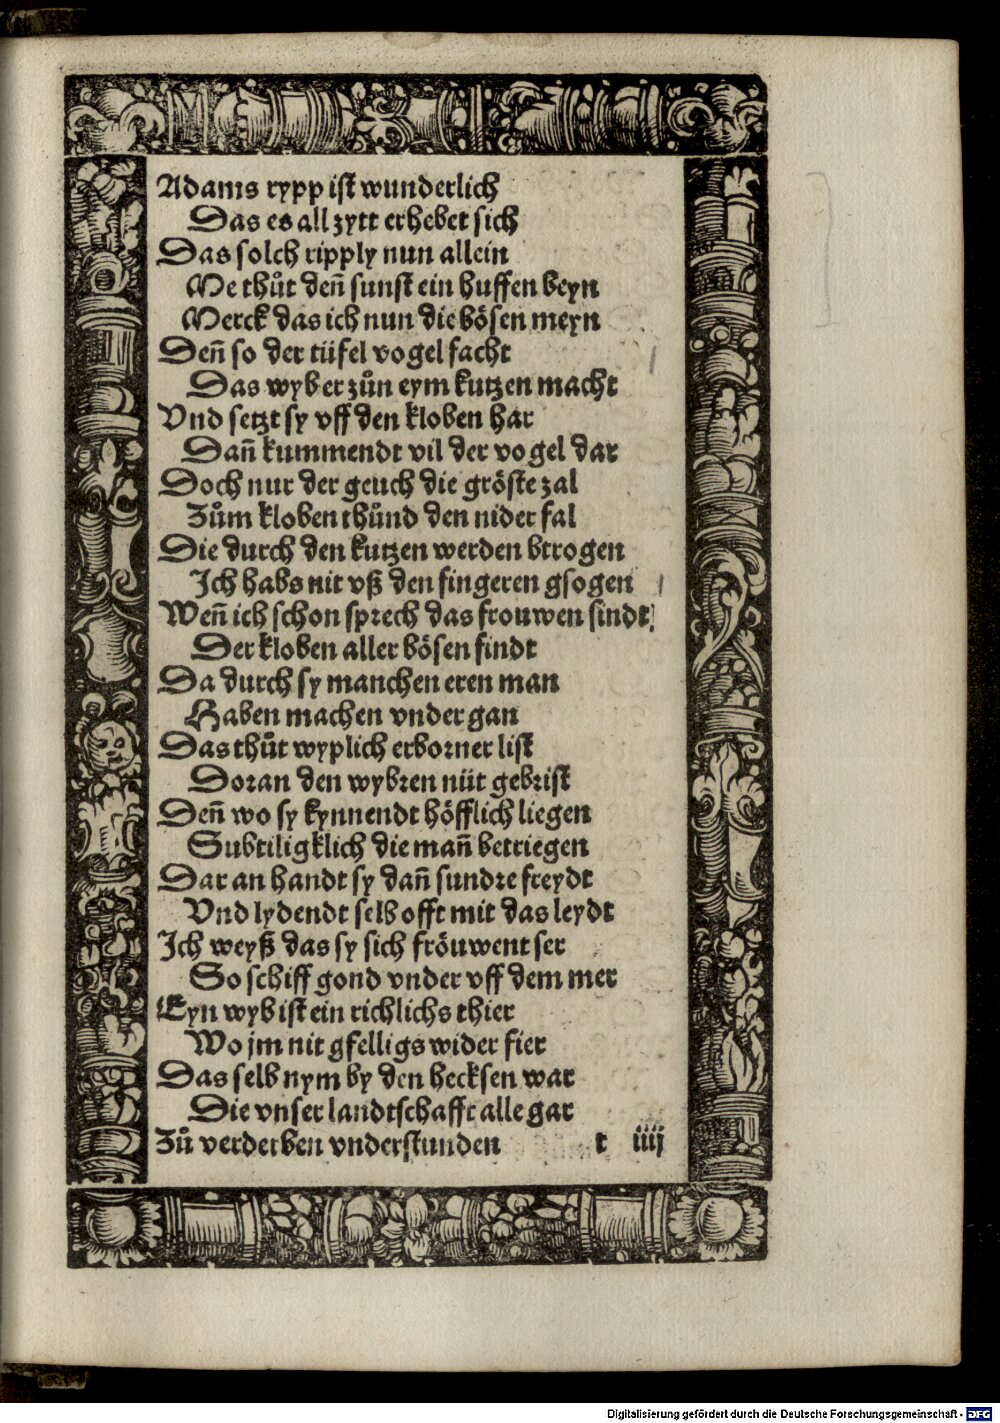 Adams rypp ist wunderlich
Das es all zytt erhebet sich
Das solch ripply nun allein
Me thůt deñ sunst ein huffen beyn
Merck das ich nun die bösen meyn
Deñ so der tüfel vogel facht
Das wyber zůn eym kutzen macht
Vnd setzt sy vff den kloben har
Dañ kummendt vil der vogel dar
Doch nur der geuch die gröste zal
Zům kloben thůnd den nider fal
Die durch den kutzen werden btrogen
Ich habs nit vß den fingeren gsogen
Weñ ich schon sprech das frouwen sindt
Der kloben aller bösen findt
Da durch sy manchen eren man
Haben machen vnder gan
Das thůt wyplich erborner list
Doran den wybren nüt gebrist
Deñ wo sy kynnendt höfflich liegen
Subtiligklich die mañ betriegen
Dar an handt sy dañ sundre freydt
Vnd lydendt selb offt mit das leydt
Ich weyß das sy sich fröuwent ser
So schiff gond vnder vff dem mer
Eyn wyb ist ein richlichs thier
Wo jm nit gfelligs wider fier
Das selb nym by den hecksen war
Die vnser landtschafft alle gar
Zů verderben vnderstunden t iiij
Digitalisierung gefördert durch die Deutsche Forschungsgemeinschaft - DFG